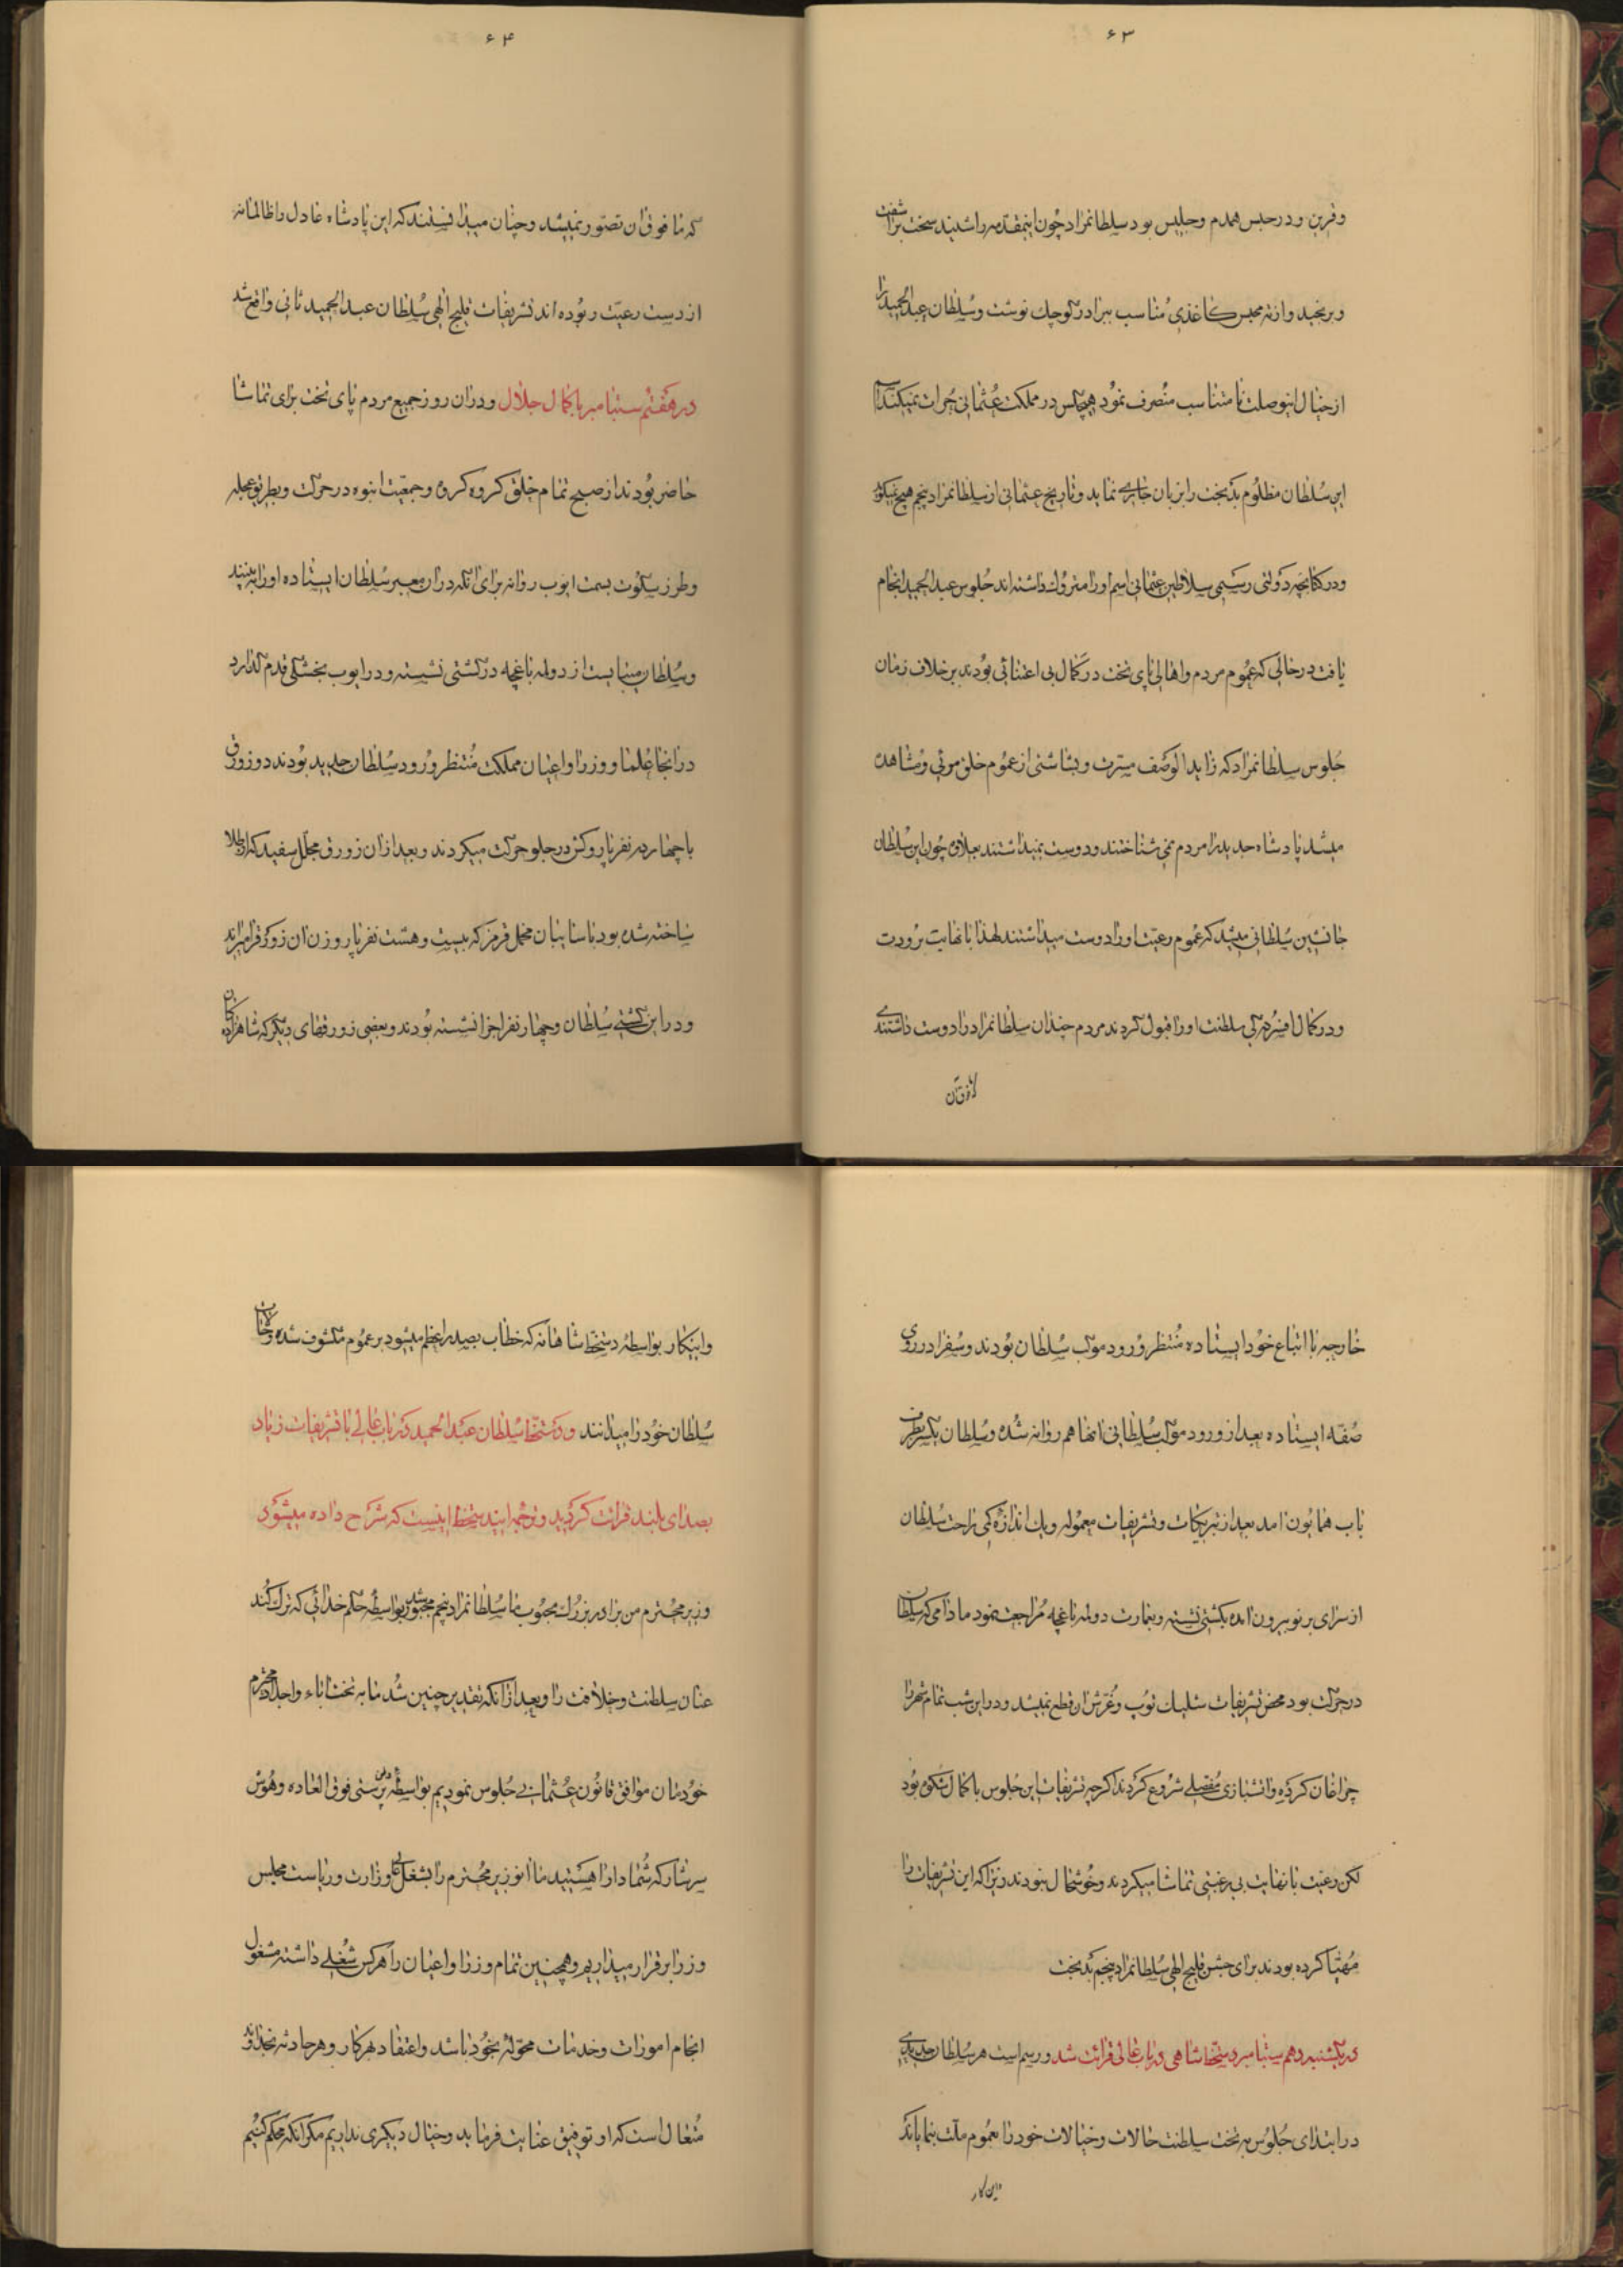 ۶۳
و قرین و در حبس همدم و جلیس بود سلطانمراد چون اینمقدمه را شنید سخت براشفت
و برنجید و از ته محبس کاغذی مناسب ببرادر کوچك نوشت و سلطان عبدالحمید را
از خیال اینوصلت نا متناسب منصرف نمود هیچکس در مملکت عثمانی جرات نمیکند اسم
این سلطان مظلوم بدبخت را بزبان جاری نماید و تاریخ عثمانی از سلطانمراد پنجم هیچ نمیگوید
و در کتابچه دولتی رسمی سلاطین عثمانی اسم او را متروك داشته اند جلوس عبدالحمید انجام
یافت در حالی که عموم مردم و اهالی پای تخت در کمال بی اعتنائی بودند بر خلاف زمان
جلوس سلطانمراد که زاید الوصف مسرت و بشاشتی از عموم خلق مرئی و مشاهده
میشد پادشاه جدید را مردم نمی شناختند و دوست نمیداشتند بعلاوه چون این سلطان
جانشین سلطانی میشد که عموم رعیت او را دوست میداشتند لهذا با نهایت برودت
و در کمال افسردگی سلطنت او را قبول کردند مردم چندان سلطانمراد را دوست داشتندی
۶۴
که ما فوق ان تصور نمیشد و چنان میدانستند که این پادشاه عادل را ظالمانه
از دست رعیت ربوده اند تشریفات قلیج الهی سلطان عبدالحمید ثانی واقع شد
در هفتم سپتامبر با کمال جلال و در ان روز جمیع مردم پای تخت برای تماشا
حاضر بودند از صبح تمام خلق کروه کروه و جمعیت انبوه در حرکت و بطریق عجله
و طرز سکوت بسمت ایوب روانه برای انکه در ان معبر سلطان ایستاده او را به بینند
و سلطان میبایست از دولمه باغچه در کشتی نشسته و در ایوب بخشکی قدم گذارد
در انجا علما و وزرا و اعیان مملکت منتظر ورود سلطان جدید بودند دو زورق
با چهارده نفر پاروکش در جلو حرکت میکردند و بعد از ان زورق مجلل سفید که از طلا
ساخته شده بود با سایبان مخمل قرمز که بیست و هشت نفر پاروزن ان زورق را میراند
و در این کشتی سلطان و چهار نفر اجزا نشسته بودند و بعضی زورقهای دیگر که شاهزادکان
خارجه با اتباع خود ایستاده منتظر ورود موکب سلطان بودند و سفرا در روی
صفه ایستاده بعد از ورود موکب سلطانی انها هم روانه شده و سلطان یکسر بطرف
باب همایون امد بعد از تبریکات و تشریفات معموله و یك اندازه کمی راحت سلطان
از سرای برنو بیرون امده بکشتی نشسته و بعمارت دولمه باغچه مراجعت نمود ما دامی که سلطان
در حرکت بود محض تشریفات شلیك توپ و غرش ان قطع نمیشد و در این شب تمام شهر را
چراغان کرده و اتشبازی مفصلی شروع کردند اکرچه تشریفات این جلوس با کمال شکوه بود
لکن رعیت با نهایت بی رغبتی تماشا میکردند و خوشحال نبودند زیرا که این تشریفات را
مهیا کرده بودند برای جشن قلیج الهی سلطانمراد پنجم بدبخت
در یکشنبه دهم سپتامبر دستخط شاهی در باب عالی قرائت شد و رسم است هر سلطان جدیدی
در ابتدای جلوس به تخت سلطنت حالات و خیالات خود را بعموم ملت بنمایاند
و این کار
و اینکار بواسطه دستخط شاهانه که خطاب بصدر اعظم میشود بر عموم مکشوف شده و خیالات
سلطان خود را میدانند و دستخط سلطان عبدالحمید در باب عالی با تشریفات زیاد
بصدای بلند قرائت کردید و ترجمه ایندستخط اینست که شرح داده میشود
وزیر محترم من برادر بزرك محبوب ما سلطانمراد پنجم مجبور شد بواسطه حکم خدائی که ترك کند
عنان سلطنت و خلافت را و بعد از انکه تقدیر چنین شد ما به تخت اباء و اجداد محترم
خودمان موافق قانون عثمانی جلوس نمودیم بواسطه وطن پرستی فوق العاده و هوش
سرشار که شما دارا هستید ما انوزیر محترم را بشغل وزارت و ریاست مجلس
وزرا برقرار میداریم و همچنین تمام وزرا و اعیان را هر کس شغلی داشته مشغول
انجام امورات و خدمات محوله بخود باشد و اعتقاد هر کار و هر حادثه بخداوند
متعال است که او توفیق عنایت فرماید و خیال دیگری نداریم مکر انکه محکم کنیم